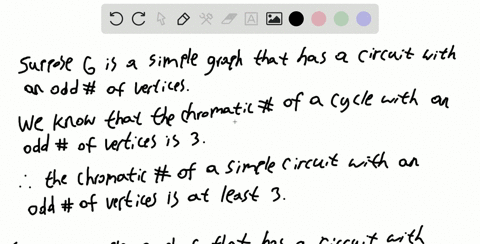 Suppose G is a simple graph that has a circuit with
an odd # of vertices.
We know that the chromatic # of a cycle with an
odd # of vertices is 3.
∴ the chromatic # of a simple circuit with an
odd # of vertices is at least 3.
that has a circuit with